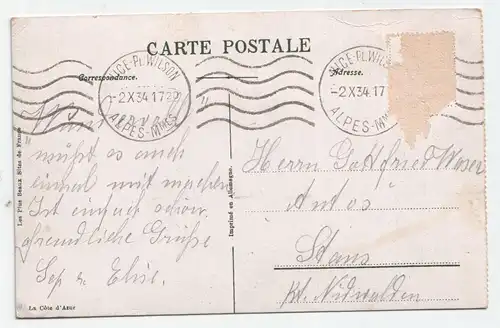 CARTE POSTALE
Correspondance.
Adresse.
NICE-Pl. WILSON
-2 X 34 17 29
ALPES-Mmes
NICE-Pl. WILSON
-2 X 34. 17
ALPES-Mmes
mußt es auch
einmal mit machen
Ist einfach schön
freundliche Grüße
Sep & Elise.
Herrn Gottfried Waser
Autos
Stans
Kt. Nidwalden
Les Plus Beaux Sites de France
Imprimé en Allemagne.
La Côte d'Azur